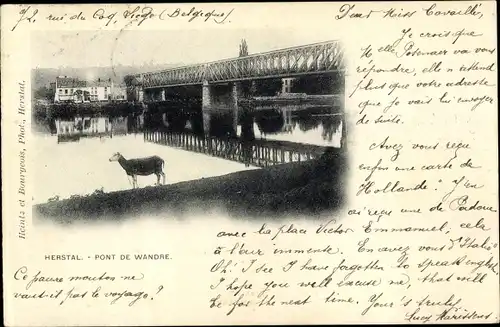 42 rue du Coq Liége (Belgique)
Dear Miss Cavaillé,
Je crois que
Mr Potenaer va vous
répondre, elle n'attend
plus que votre adresse
que je vais lui envoyer
de suite.
Avez vous reçu
enfin une carte de
Hollande? J'en
ai reçu une de Padoue
avec la place Victor Emmanuel, cela
a l'air immense. En avez vous d'Italie?
Oh! I see I have forgotten to speak english,
I hope you will excuse me, that will
be for the next time. Your's truly
Lucy
Reintz et Bourgeois, Phot., Herstal.
HERSTAL. - PONT DE WANDRE.
Ce pauvre mouton ne
vaut-il pas le voyage?